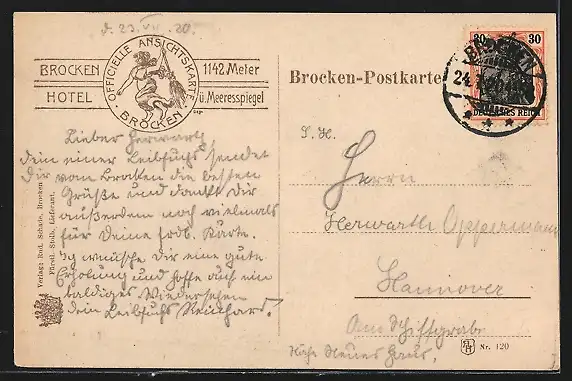 d. 23. VII. 20.
OFFICIELLE ANSICHTSKARTE
BROCKEN
BROCKEN 1142 Meter
HOTEL ü. Meeresspiegel
Brocken-Postkarte
30 30
BROCKEN
24.7.20
DEUTSCHES REICH
Lieber Herwarth
dein einer Leibfuchs sendet
Dir vom Brocken die besten
Grüße und dankt Dir
außerdem noch vielmals
für Deine frdl. Karte.
Ich wünsche Dir eine gute
Erholung und hoffe auch ein
baldiges Wiedersehen
Dein Leibfuchs Reinhard.
S. H.
Herrn
Herwarth Oppermann
Hannover
Am Schiffgrabe
Nähe Neues Haus.
Verlag: Rud. Schade, Brocken
Fürstl. Stolb. Lieferant.
Nr. 120